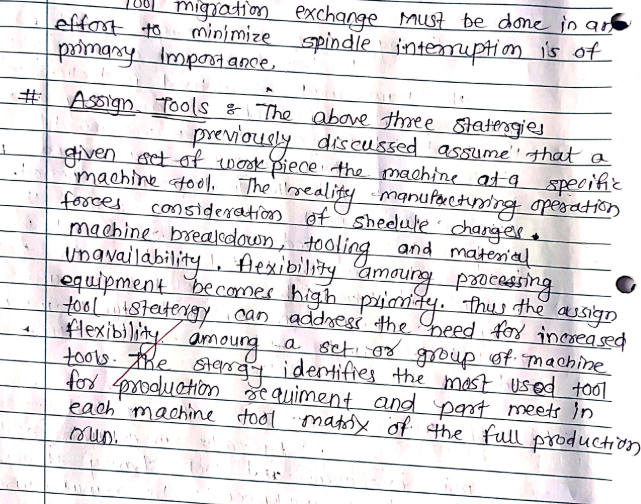 Tool migration exchange must be done in an
effort to minimize spindle interruption is of
primary importance.
# Assign Tools : The above three statergies
previously discussed assume that a
given set of work piece the machine at a specific
machine tool. The reality manufacturing operation
forces consideration of shedule changes.
machine breakdown, tooling and material
unavailability. flexibility amoung processing
equipment becomes high priority. Thus the assign
tool statergy can address the need for increased
flexibility amoung a set or group of machine
tools. The stargy identifies the most used tool
for production requiment and part meets in
each machine tool matrix of the full production
run.